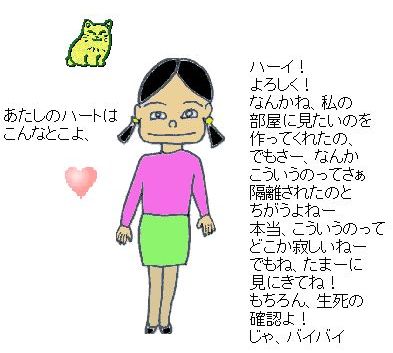 あたしのハートは
こんなとこよ、
ハーイ！
よろしく！
なんかね、私の
部屋に見たいのを
作ってくれたの、
でもさー、なんか
こういうのってさぁ
隔離されたのと
ちがうよねー
本当、こういうのって
どこか寂しいねー
でもね、たまーに
見にきてね！
もちろん、生死の
確認よ！
じゃ、バイバイ